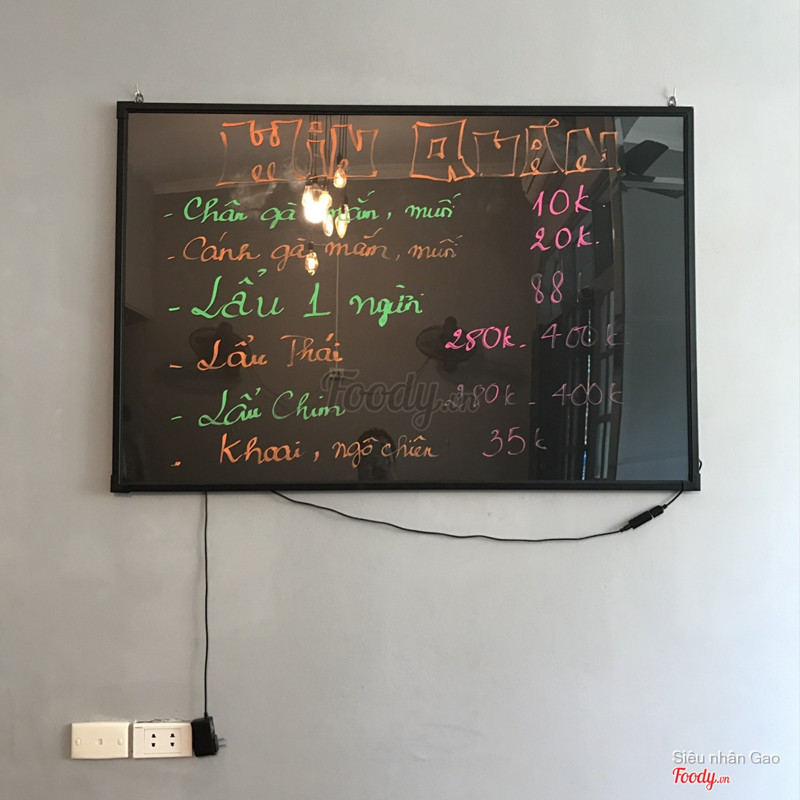 Win Quán
- Chân gà mắm, muối 10k
- Cánh gà mắm, muối 20k.
- Lẩu 1 người 88
- Lẩu Thái 280k - 400k
- Lẩu Chim 280k - 400k
. Khoai, ngô chiên 35k
Foody.vn
Siêu nhân Gao
Foody.vn